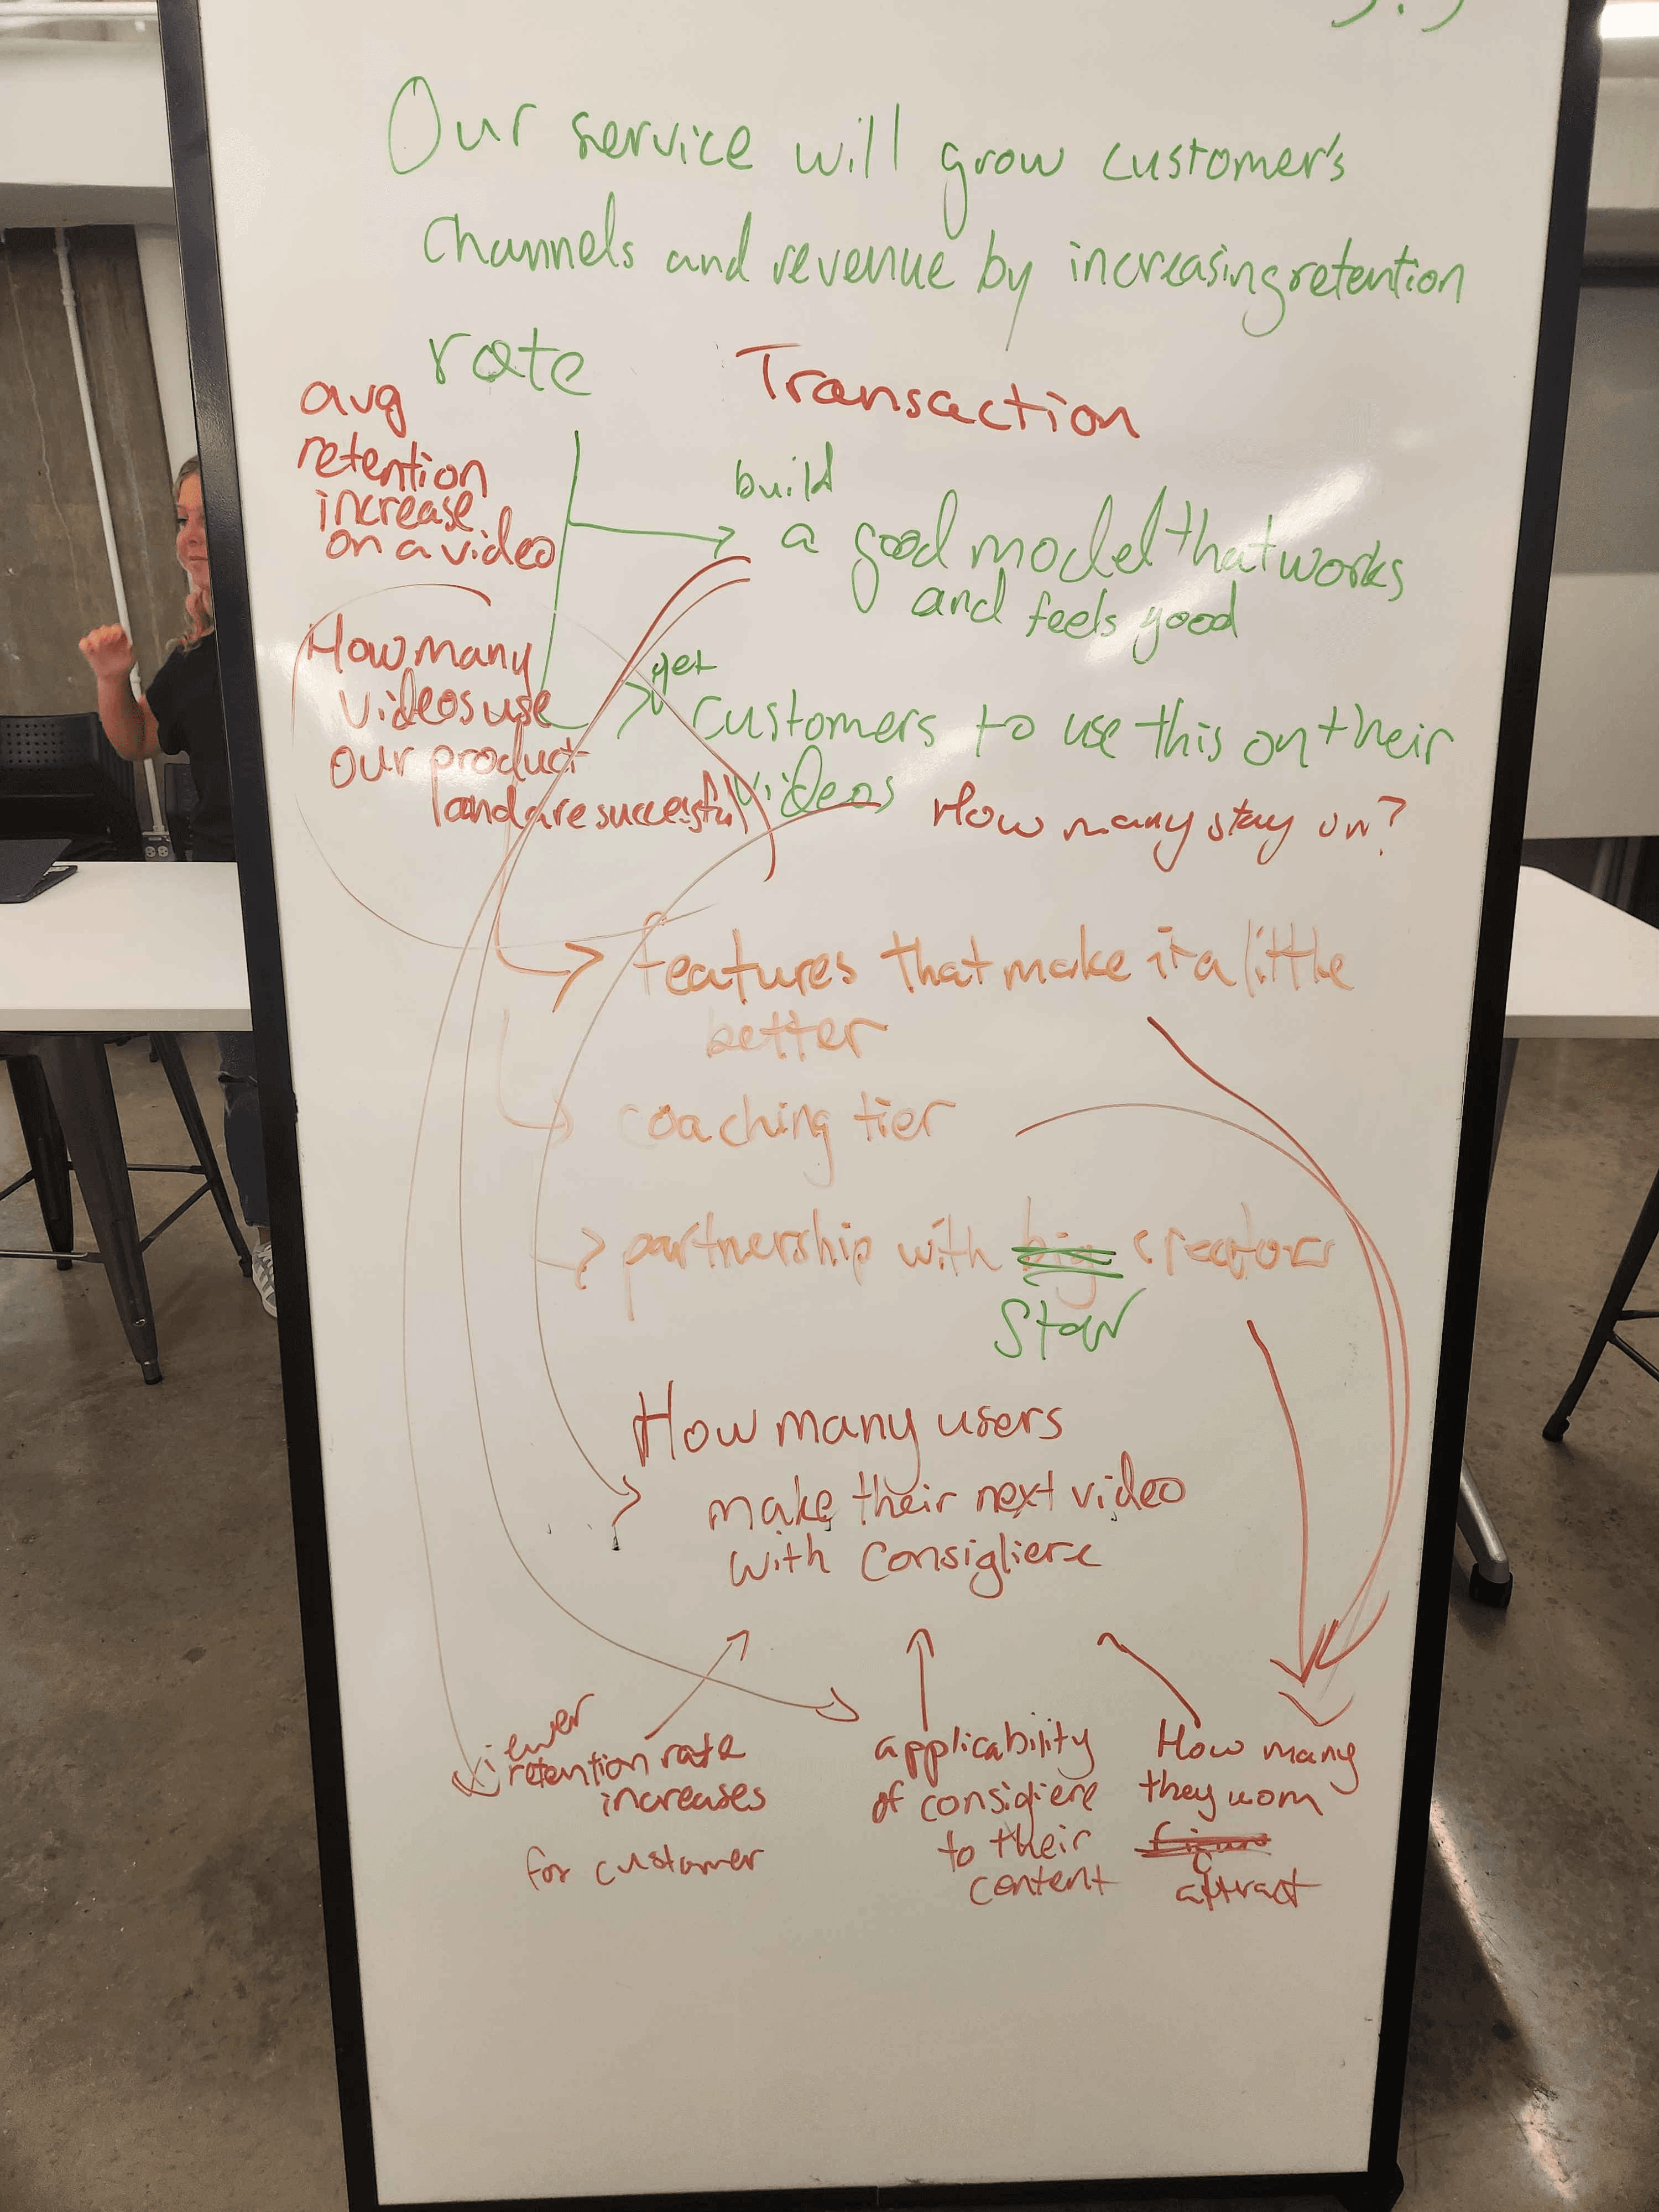 Our service will grow customer's
channels and revenue by increasing retention
rate
Transaction
avg
retention
increase
on a video
build
a good model that works
and feels good
How many
videos use
our product
and are successful
get
customers to use this on their
videos
How many stay on?
features that make it a little
better
coaching tier
partnership with big creators
Star
How many users
make their next video
with Consigliere
viewer
retention rate
increases
for customer
applicability
of consigliere
to their
content
How many
they
attract